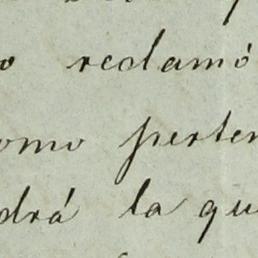 o reclamó
omo perten
drá la qu